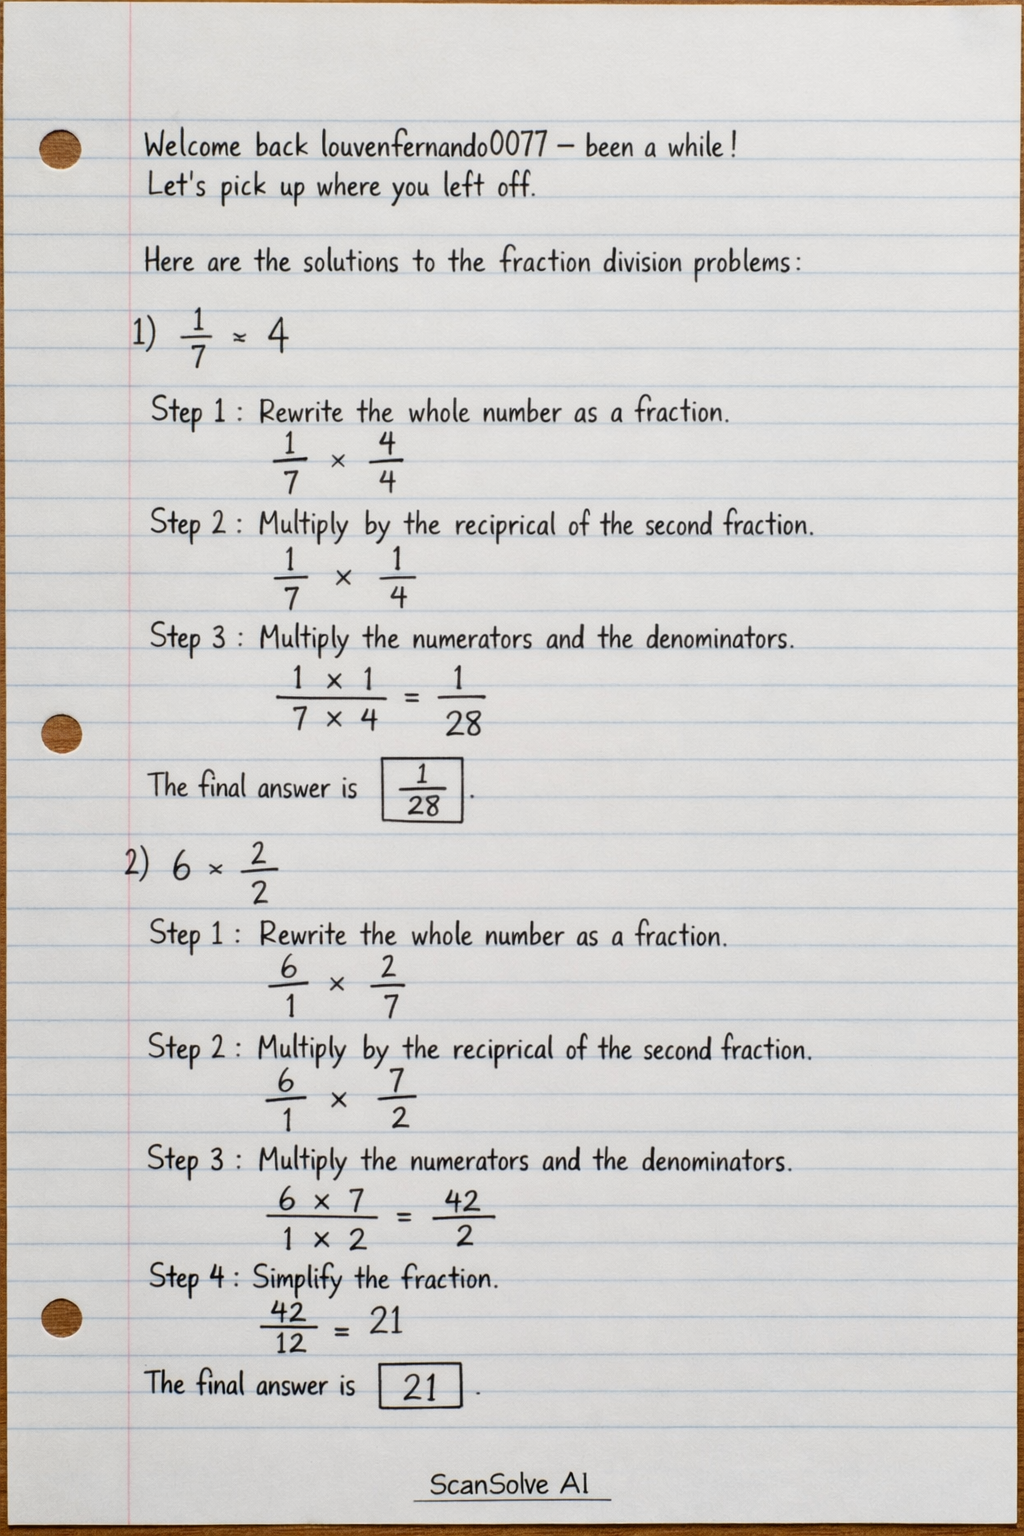 Welcome back louvenfernando0077 – been a while!
Let's pick up where you left off.
Here are the solutions to the fraction division problems:
1) 1/7 ≈ 4
Step 1: Rewrite the whole number as a fraction.
1/7 × 4/4
Step 2: Multiply by the reciprical of the second fraction.
1/7 × 1/4
Step 3: Multiply the numerators and the denominators.
1 × 1 / 7 × 4 = 1/28
The final answer is 1/28.
2) 6 × 2/2
Step 1: Rewrite the whole number as a fraction.
6/1 × 2/7
Step 2: Multiply by the reciprical of the second fraction.
6/1 × 7/2
Step 3: Multiply the numerators and the denominators.
6 × 7 / 1 × 2 = 42/2
Step 4: Simplify the fraction.
42/12 = 21
The final answer is 21.
ScanSolve AI